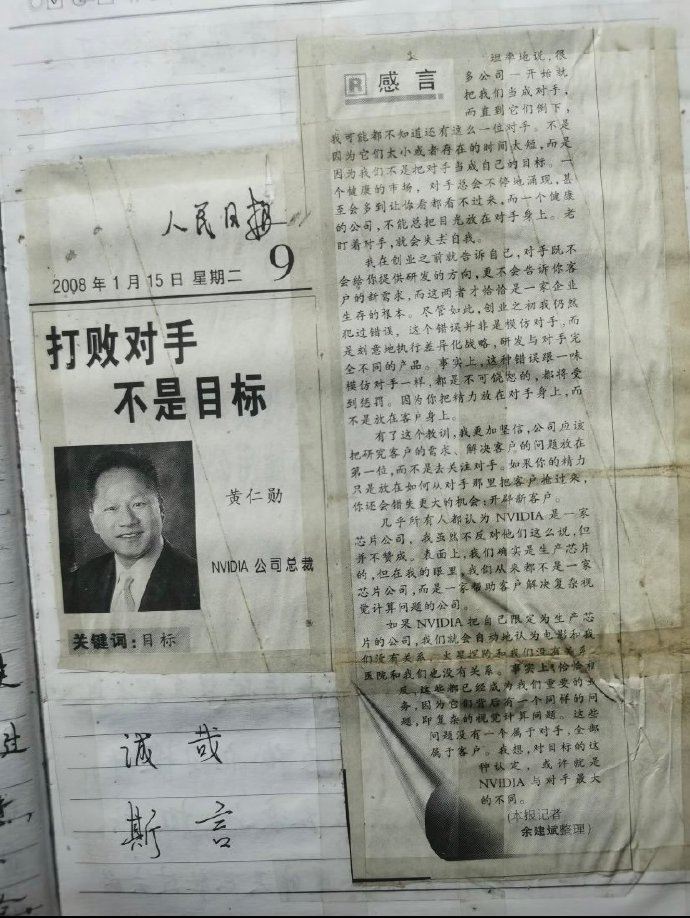 人民日报
9
2008年1月15日 星期二
打败对手
不是目标
黄仁勋
NVIDIA 公司总裁
关键词:目标
诚哉
斯言
R 感言
坦率地说,很
多公司一开始就
把我们当成对手,
而直到它们倒下,
我可能都不知道还有这么一位对手。不是
因为它们太小或者存在的时间太短,而是
因为我们不是把对手当成自己的目标。一
个健康的市场,对手总会不停地涌现,甚
至会多到让你看都看不过来,而一个健康
的公司,不能总把目光放在对手身上。老
盯着对手,就会失去自我。
我在创业之前就告诉自己,对手既不
会给你提供研发的方向,更不会告诉你客
户的新需求,而这两者才恰恰是一家企业
生存的根本。尽管如此,创业之初我仍然
犯过错误,这个错误并非是模仿对手,而
是刻意地执行差异化战略,研发与对手完
全不同的产品。事实上,这种错误跟一味
模仿对手一样,都是不可饶恕的,都将受
到惩罚。因为你把精力放在对手身上,而
不是放在客户身上。
有了这个教训,我更加坚信,公司应该
把研究客户的需求、解决客户的问题放在
第一位,而不是去关注对手。如果你的精力
只是放在如何从对手那里把客户抢过来,
你还会错失更大的机会:开辟新客户。
几乎所有人都认为 NVIDIA 是一家
芯片公司,我虽然不反对他们这么说,但
并不赞成。表面上,我们确实是生产芯片
的,但在我的眼里,我们从来都不是一家
芯片公司,而是一家帮助客户解决复杂视
觉计算问题的公司。
如果 NVIDIA 把自己限定为生产芯
片的公司,我们就会自动地认为电影和我
们没有关系,火星探险和我们没有关系,
医院和我们也没有关系。事实上,恰恰相
反,这些都已经成为我们重要的业
务,因为它们背后有一个同样的问
题,即复杂的视觉计算问题。这些
问题没有一个属于对手,全部
属于客户。我想,对目标的这
种认定,或许就是
NVIDIA 与对手最大
的不同。
(本报记者
余建斌整理)